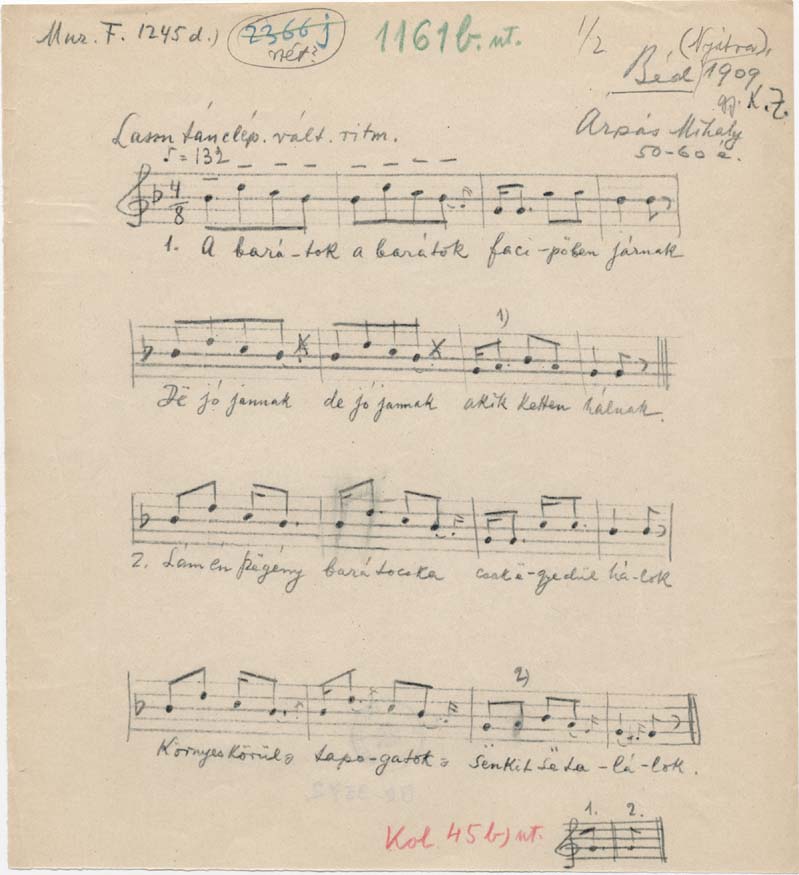 Mur. F. 1245 d.) 2366 j 1161 b. nt. 1/2 (Nyitra),
nét? Béd 1909
gy. K. Z.
Lassu tánclép. vált. ritm. Árpás Mihály
♪ = 132 50-60 é.
4/8
1. A bará-tok a barátok faci-pőben járnak
1)
De jó jannak de jó jannak akik ketten hálnak.
2. Lám én szëgény barátocska csak ë-gyedül há-lok
2)
Környeskörül tapo-gatok sënkit së ta-lá-lok.
1. 2.
Kol. 45 b) nt.